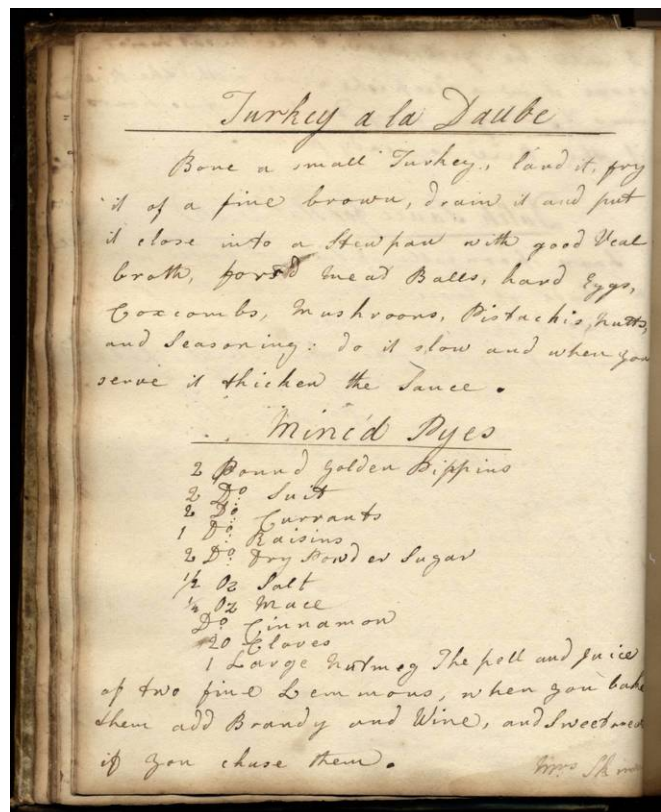 Turkey a la Daube
Bone a small Turkey, lard it, fry
it of a fine brown, drain it and put
it close into a Stewpan with good Veal
broth, forsd meat Balls, hard Eggs,
Coxcombs, Mushrooms, Pistachis, nutts,
and Seasoning: do it slow and when you
serve it thicken the Sauce.
Minc'd Pyes
2 Pound Golden Pippins
2 Do. Suit
2 Do. Currants
1 Do. Raisins
2 Do. Dry Powder Sugar
1/2 Oz Salt
1/4 Oz Mace
Do. Cinnamon
20 Cloves
1 Large Nutmeg The pell and juice
of two fine Lemmons, when you bake
them add Brandy and Wine, and Sweetmeat
if you chuse them.
Mrs